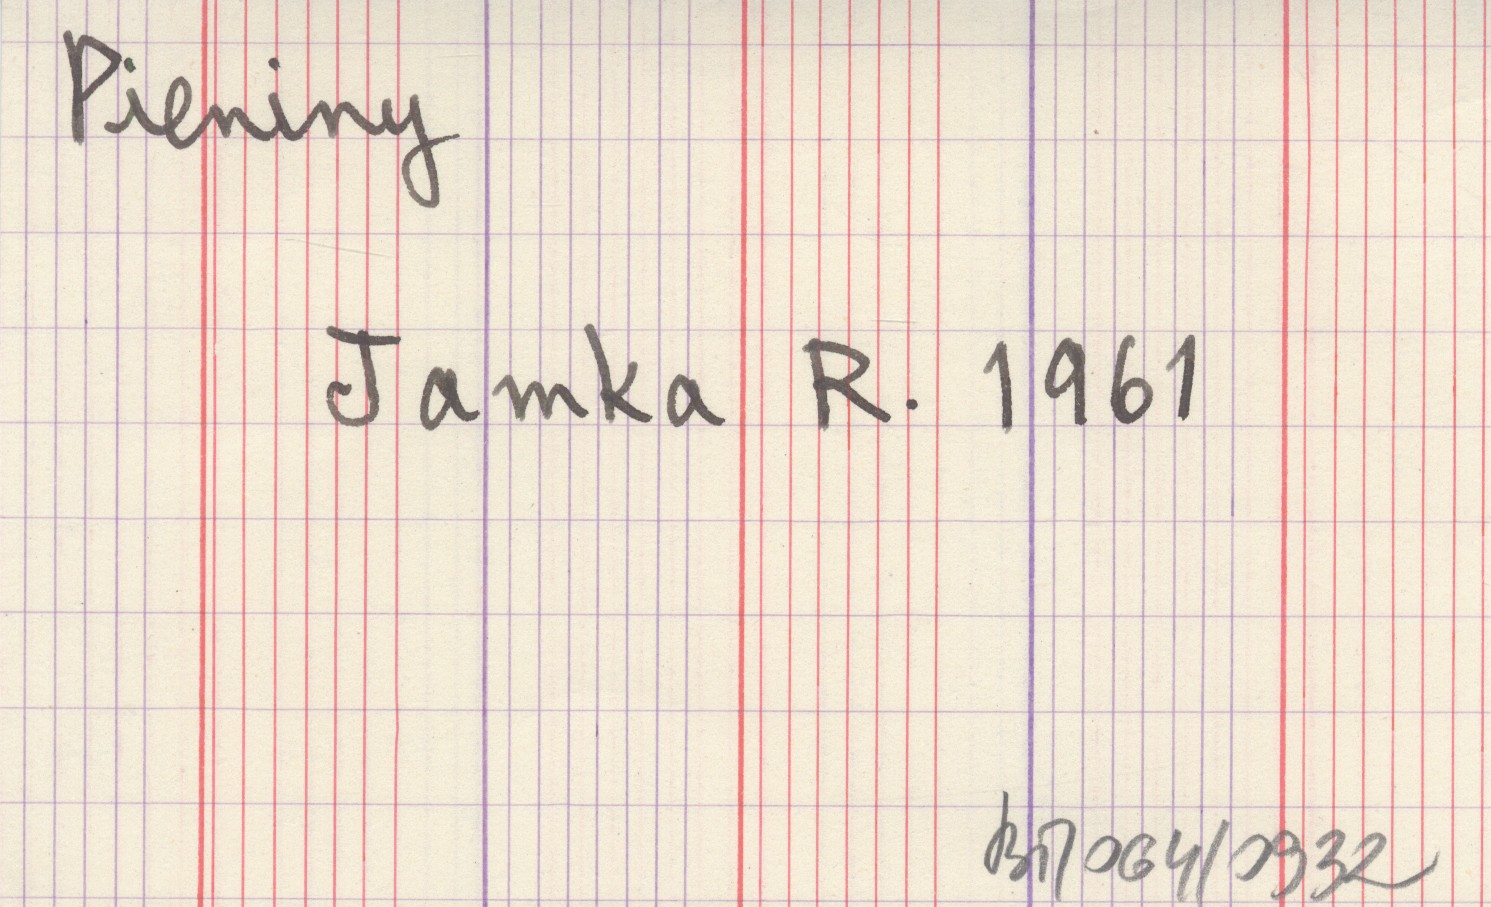 Pieniny
Jamka R. 1961
064/0932